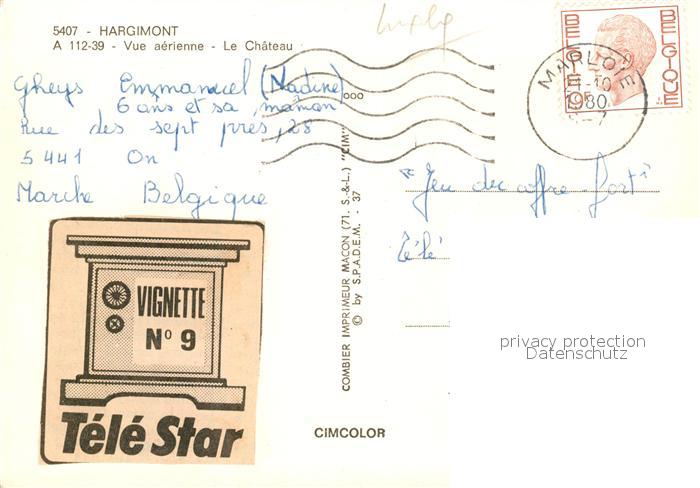 5407 - HARGIMONT
A 112-39 - Vue aérienne - Le Château
Gheys Emmanuel (Nadine)
6 ans et sa maman
Rue des sept près, 28
5441 On
Marche Belgique
VIGNETTE
N° 9
Télé Star
COMBIER IMPRIMEUR MACON (71. S.-&-L.) "CIM"
© by S.P.A.D.E.M. - 37
CIMCOLOR
BELGIË BELGIQUE
MARLOIE
1980
"Jeu du coffre-fort"
Télé
privacy protection
Datenschutz